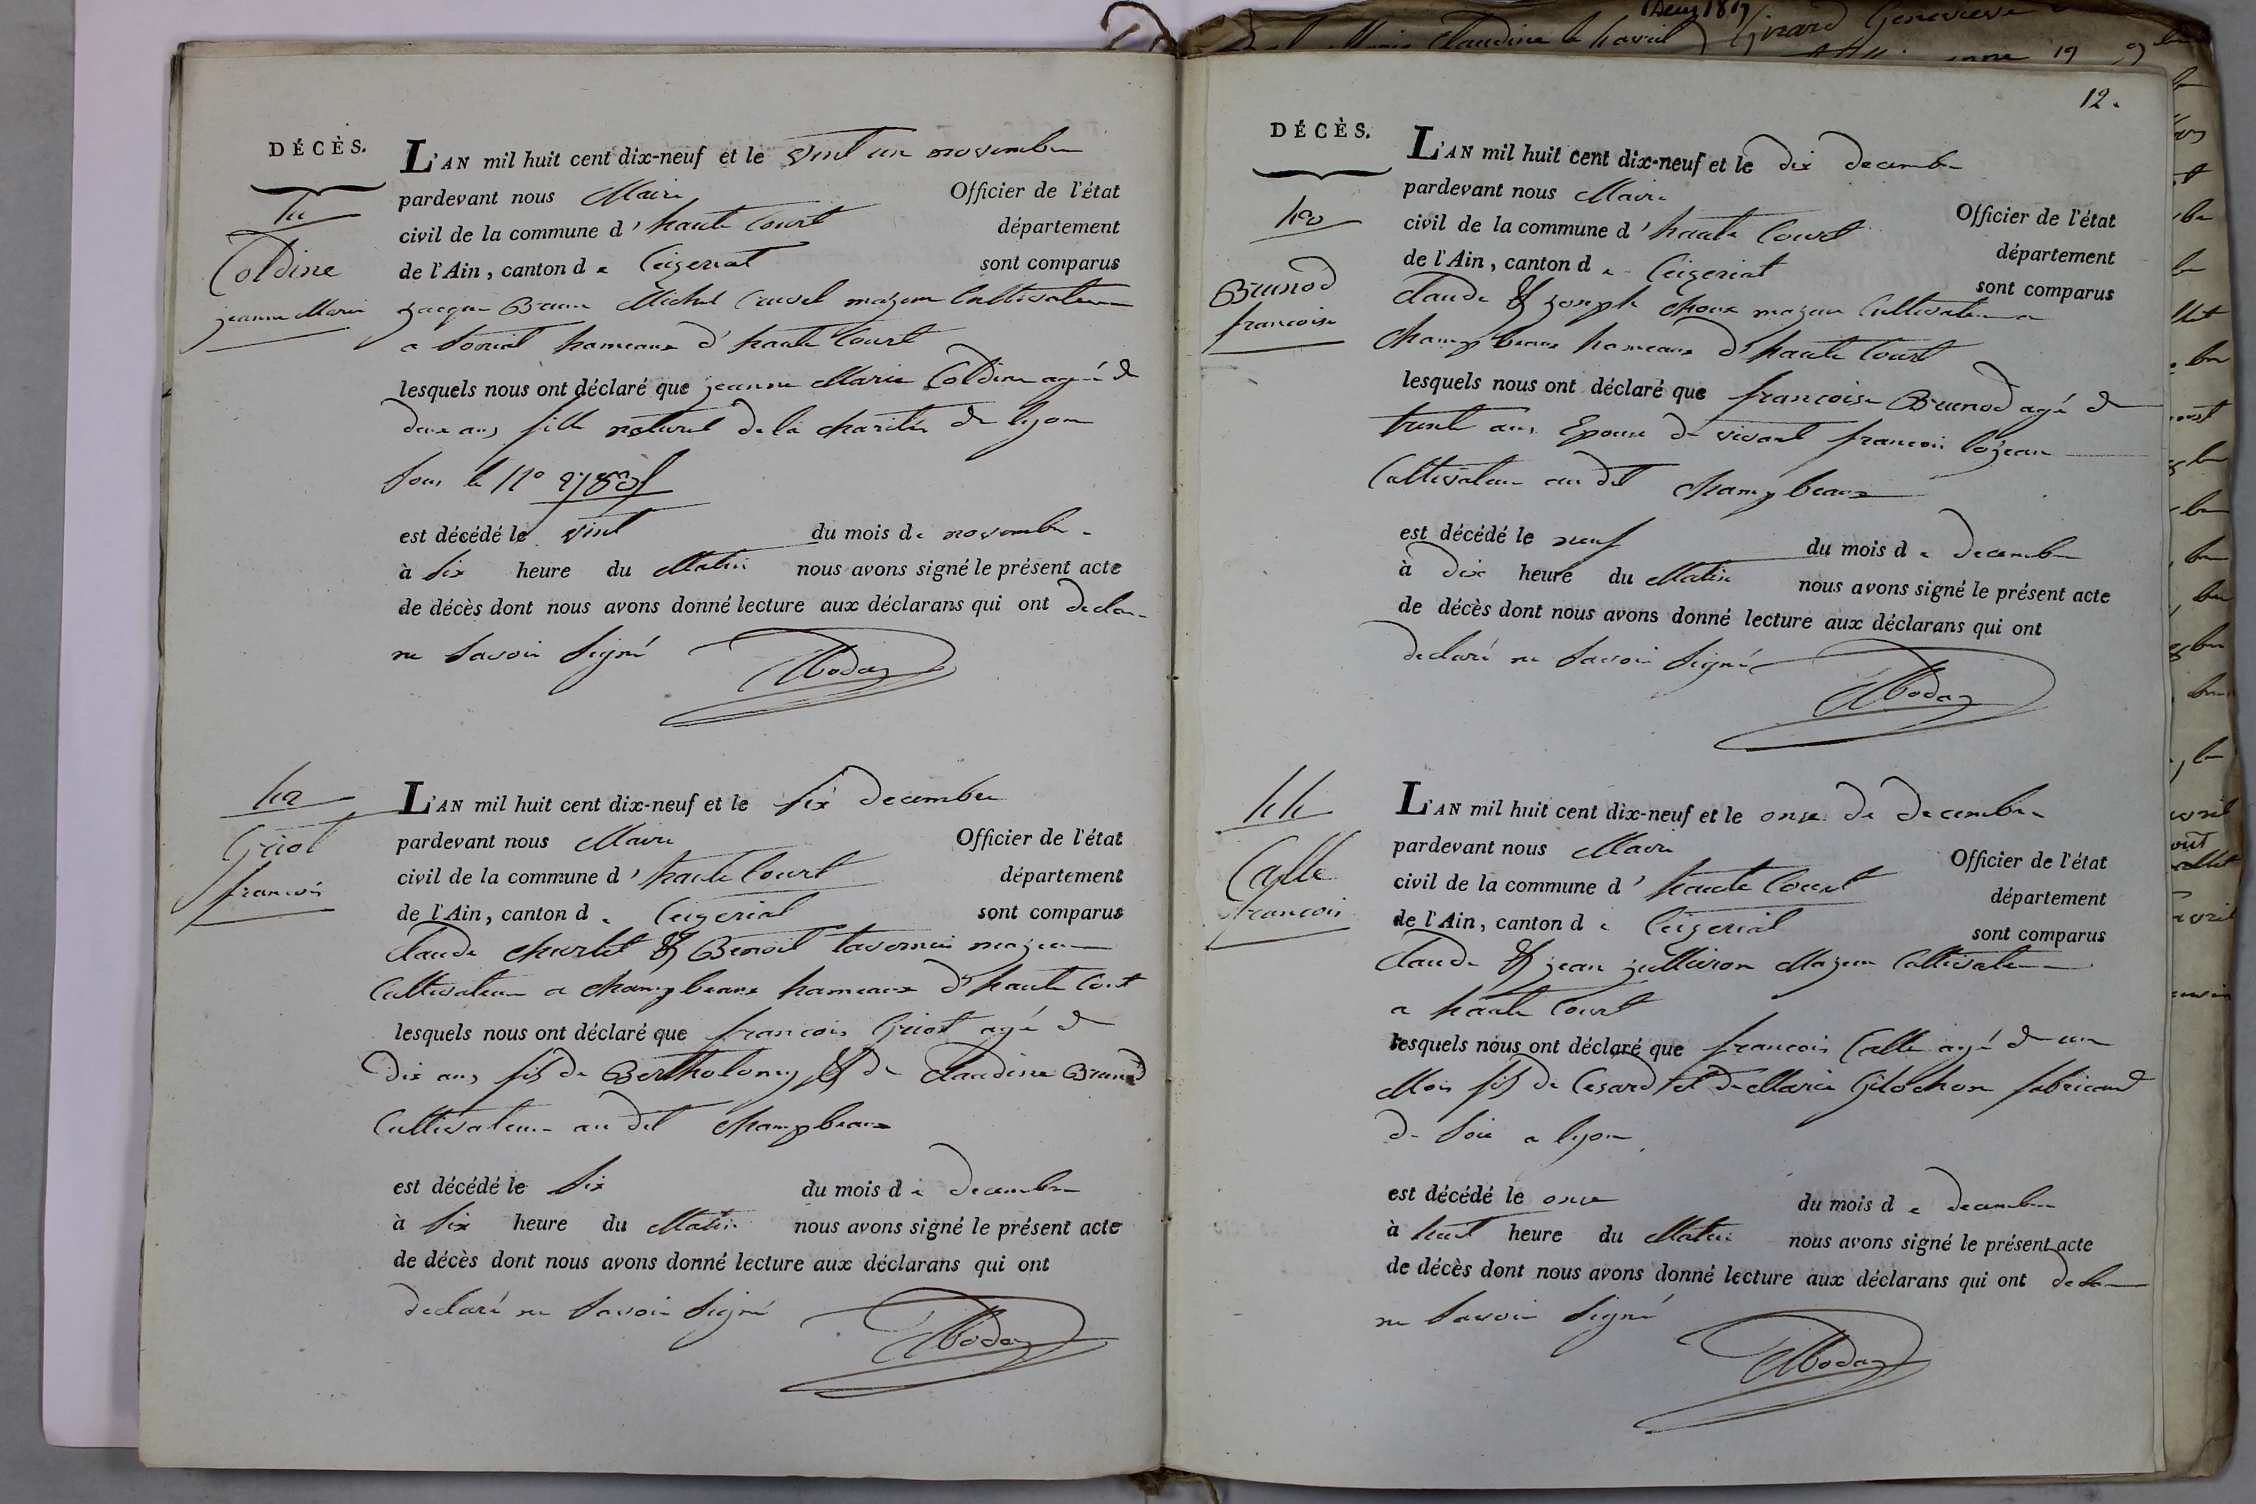 DÉCÈS.
Coldine
jeanne Marie
L'AN mil huit cent dix-neuf et le vint un novembre
pardevant nous Maire Officier de l'état
civil de la commune d'haute Court département
de l'Ain, canton de Ceizeriat sont comparus
jacque Brun Michel Cruvel mazeur Cultivateur
a hameaux d'haute Court
lesquels nous ont déclaré que jeanne Marie Coldine agé de
deux ans fille naturel de la charitée de lyon
sous le No
est décédé le vint du mois de novembre
à six heure du Matin nous avons signé le présent acte
de décès dont nous avons donné lecture aux déclarans qui ont declaré
ne Savoir Signé
Moda
42
Griot
francois
L'AN mil huit cent dix-neuf et le six decembre
pardevant nous Maire Officier de l'état
civil de la commune d'haute Court département
de l'Ain, canton de Ceizeriat sont comparus
Claude Charlet & Benoit tavernier mazeur
Cultivateur a Champbeaux hameaux d'haute Court
lesquels nous ont déclaré que francois Griot agé de
dix ans fils de Bertholomy & de Claudine Brunod
Cultivateur au dit Champbeaux
est décédé le Six du mois de decembre
à Six heure du Matin nous avons signé le présent acte
de décès dont nous avons donné lecture aux déclarans qui ont
declaré ne Savoir Signé
Moda
12.
DÉCÈS.
43
Brunod
francoise
L'AN mil huit cent dix-neuf et le dix decembre
pardevant nous Maire Officier de l'état
civil de la commune d'haute Court département
de l'Ain, canton de Ceizeriat sont comparus
Claude & joseph Choux mazeur Cultivateur a
Champbeaux hameaux d'haute Court
lesquels nous ont déclaré que francoise Brunod agé de
trente ans Epouse de vivant francois lozean
Cultivateur au dit Champbeaux
est décédé le neuf du mois de decembre
à dix heure du Matin nous avons signé le présent acte
de décès dont nous avons donné lecture aux déclarans qui ont
declaré ne Savoir Signé
Moda
44
Calle
francois
L'AN mil huit cent dix-neuf et le onze de decembre
pardevant nous Maire Officier de l'état
civil de la commune d'haute Court département
de l'Ain, canton de Ceizeriat sont comparus
Claude & jean jullieron Mazeur Cultivateur
a haute Court
lesquels nous ont déclaré que francois Calle agé de un
Mois fils de Cesard et de Marie Gilochon fabricand
de Soie a lyon
est décédé le onze du mois de decembre
à huit heure du Matin nous avons signé le présent acte
de décès dont nous avons donné lecture aux déclarans qui ont declaré
ne Savoir Signé
Moda